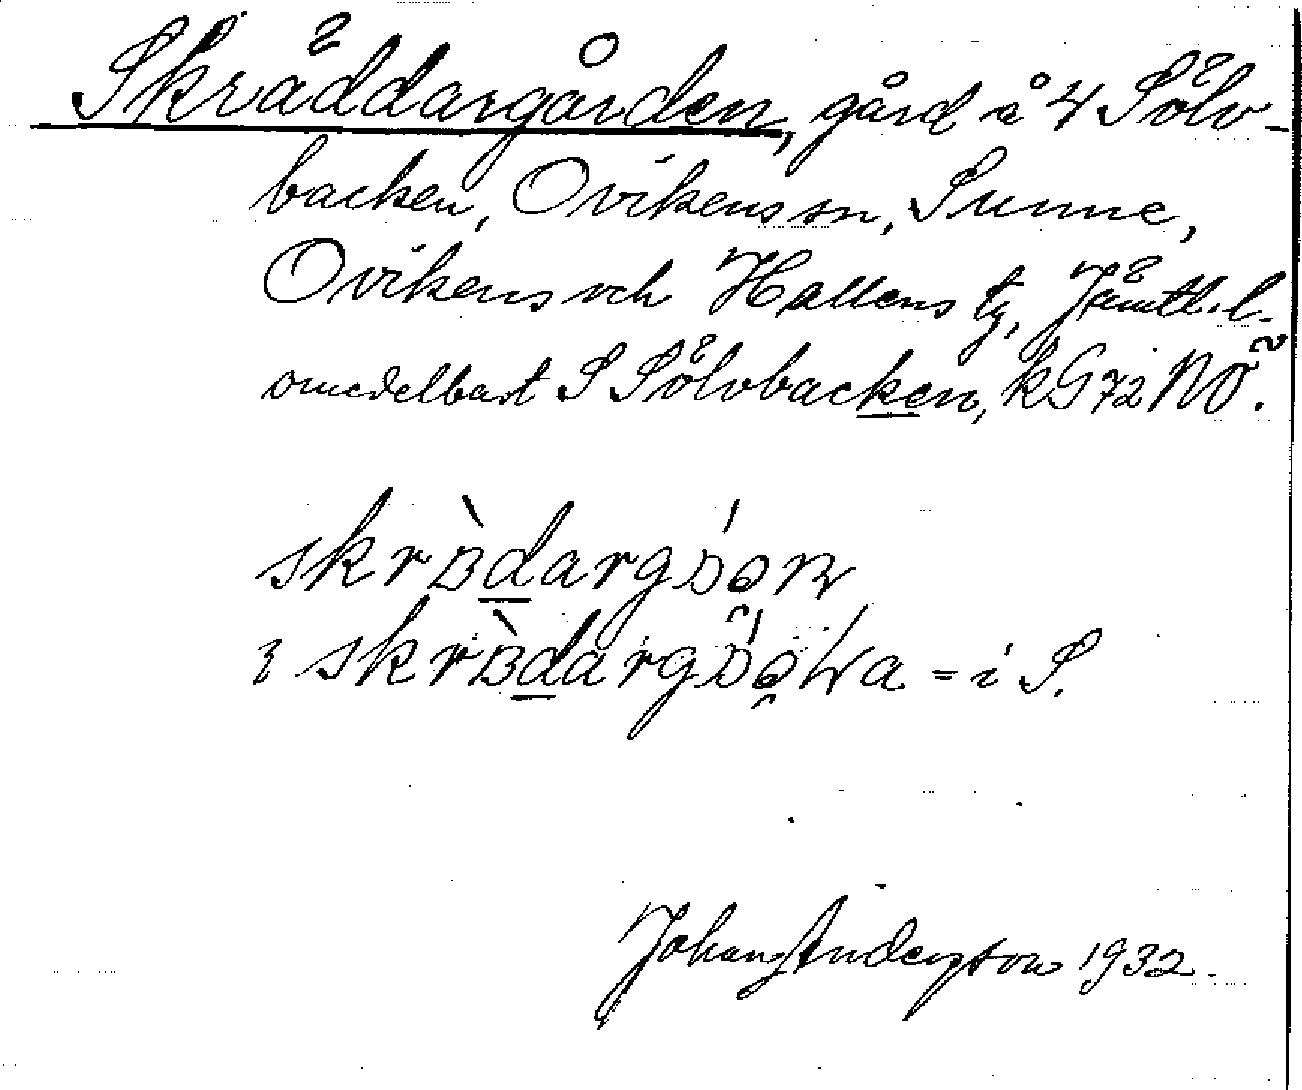 Skräddargården, gård å 4 Sölv-
backen, Ovikens sn, Sunne,
Ovikens och Hallens tg, Jämtl. l.
omedelbart S Sölvbacken, kG72 NÖ.
i S.
Johan Anderson 1932.